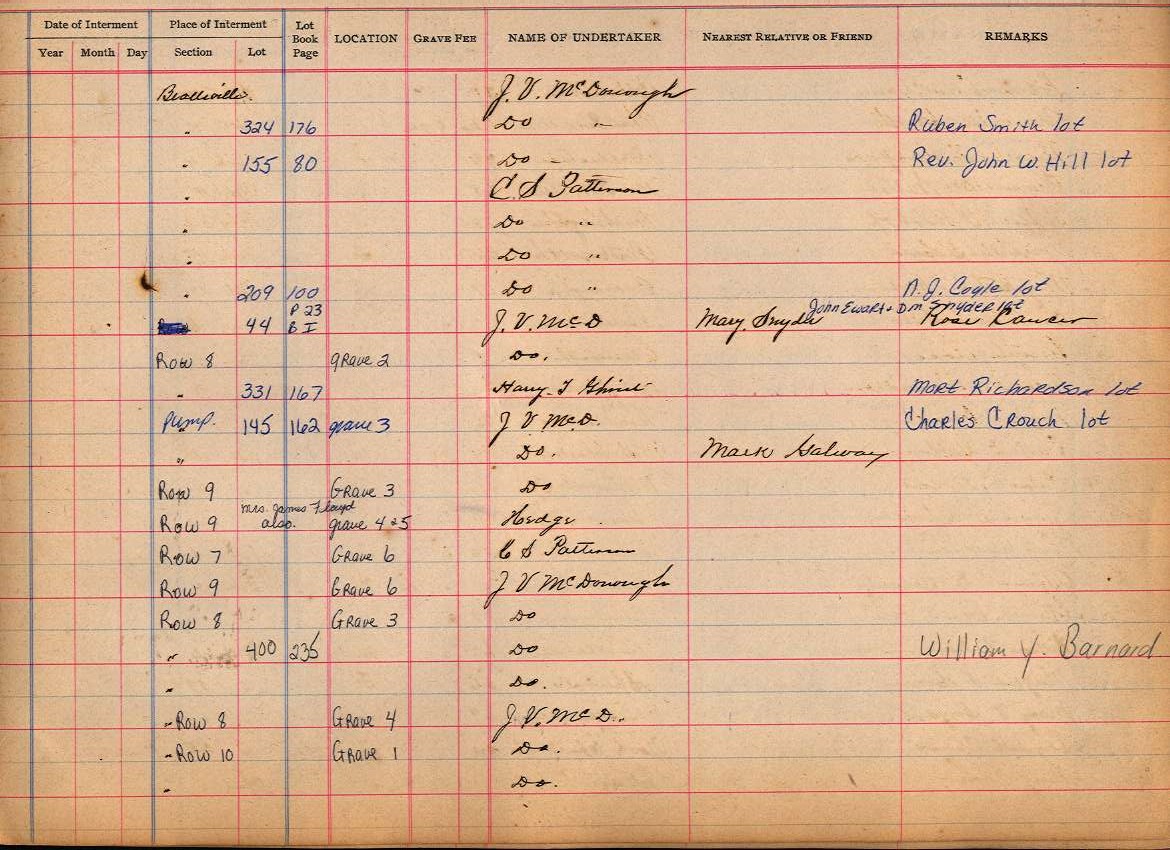 Date of Interment Place of Interment Lot Book Page LOCATION GRAVE FEE NAME OF UNDERTAKER NEAREST RELATIVE OR FRIEND REMARKS
Year Month Day Section Lot
Beallsville. J. V. McDonough
" 324 176 Do " Ruben Smith lot
" 155 80 Do " Rev. John W. Hill lot
" C. S. Patterson
" Do "
" Do "
" 209 100 Do " N. J. Coyle lot
P 23 John Ewart + D.M. Snyder lot
44 B I J. V. McD Mary Snyder Rose
Row 8 grave 2 Do.
" 331 167 Harry T Mort Richardson lot
Pump. 145 162 grave 3 J V McD. Charles Crouch lot
" Do. Mark Galway
Row 9 Grave 3 Do
Mrs. James Floyd
Row 9 also. grave 4 & 5 Hedge
Row 7 Grave 6 C S Patterson
Row 9 Grave 6 J V McDonough
Row 8 Grave 3 Do
" 400 235 Do William Y. Barnard
" Do.
" Row 8 Grave 4 J. V. McD.
" Row 10 Grave 1 Do.
" Do.